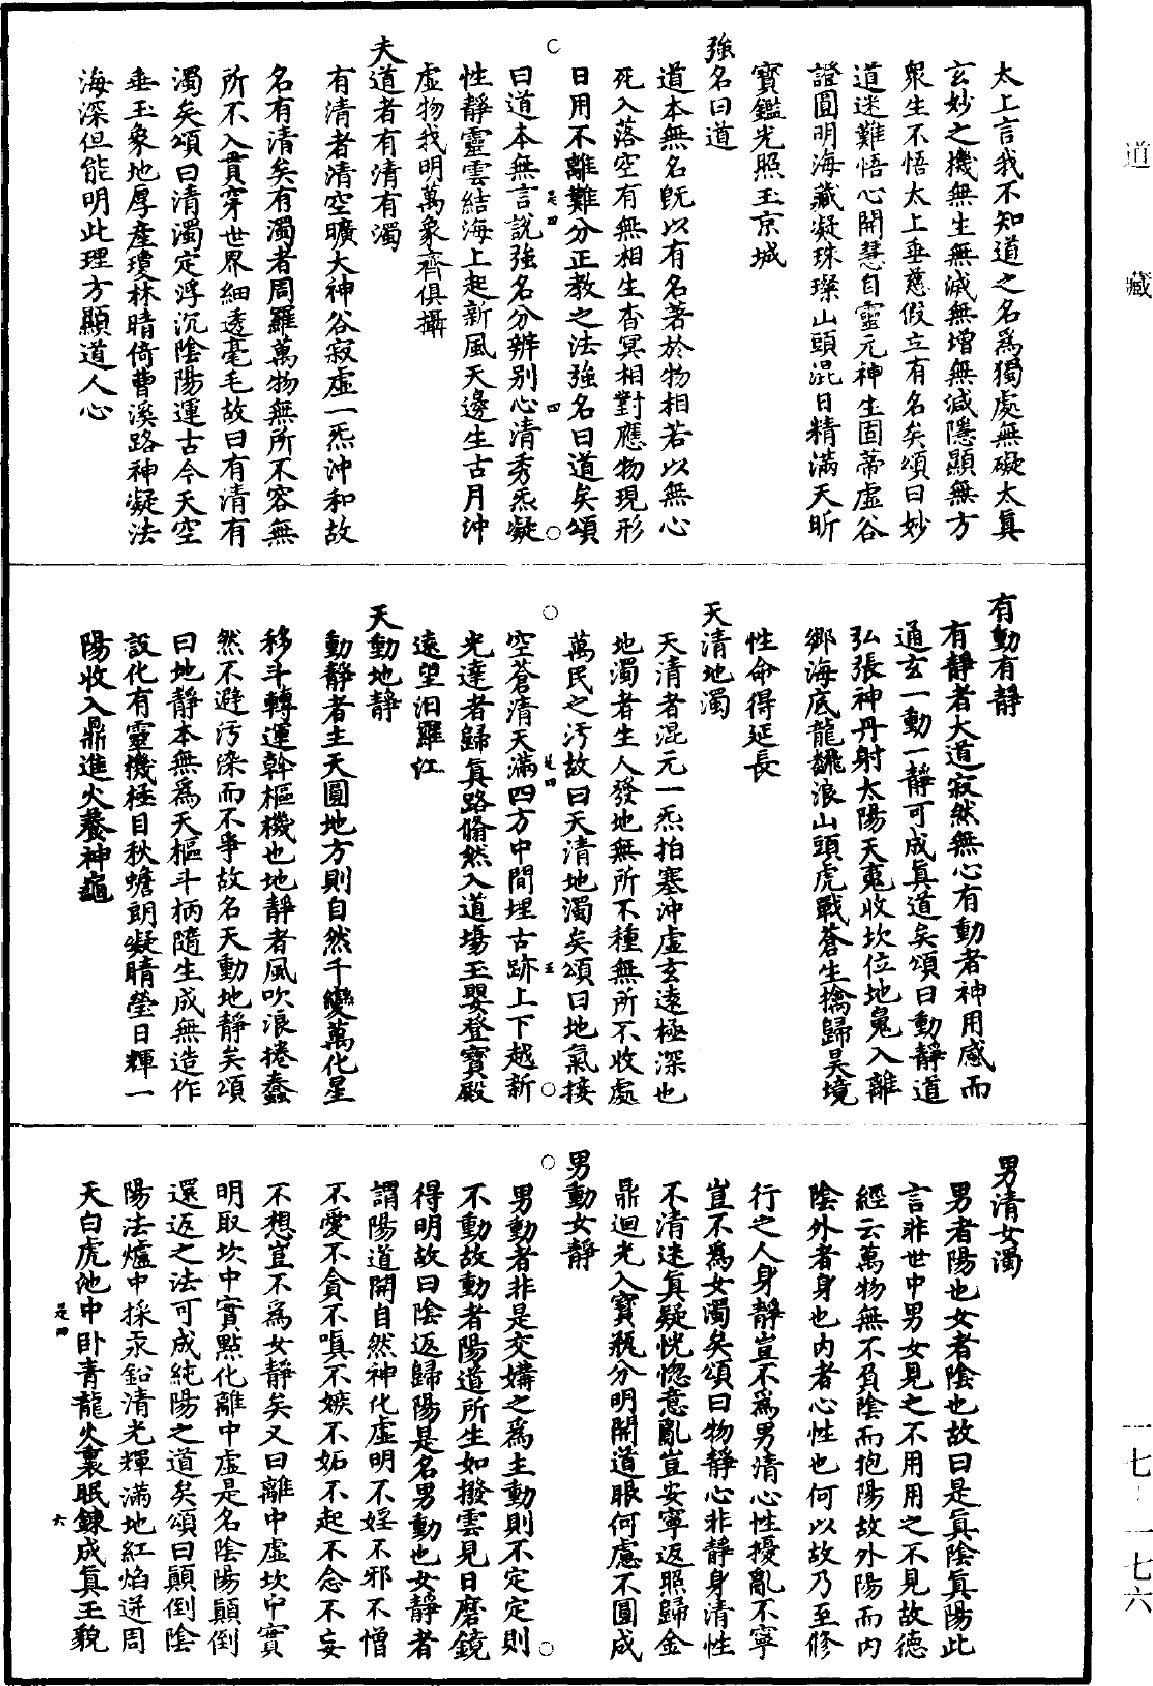 太上言我不知道之名爲獨處無礙太眞
玄妙之機無生無滅無增無減隱顯無方
衆生不悟太上垂慈假立有名矣頌曰妙
道迷難悟心開慧自靈元神生固蒂虛谷
證圓明海藏凝珠璨山頭混日精滿天昕
寶鑑光照玉京城
強名曰道
道本無名旣以有名著於物相若以無心
死入落空有無相生杳冥相對應物現形
日用不離難分正教之法強名曰道矣頌
曰道本無言說強名分辨别心清秀炁凝
性靜靈雲結海上起新風天邊生古月沖
虛物我明萬象齊俱攝
夫道者有清有濁
有清者清空曠大神谷寂虛一炁沖和故
名有清矣有濁者周羅萬物無所不容無
所不入貫穿世界細透毫毛故曰有清有
濁矣頌曰清濁定浮沉陰陽運古今天空
垂玉象地厚產瓊林晴倚曹溪路神凝法
海深但能明此理方顯道人心
有動有靜
有靜者大道寂然無心有動者神用感而
通玄一動一靜可成眞道矣頌曰動靜道
弘張神丹射太陽天寬收坎位地嵬入離
鄉海底龍飜浪山頭虎戰蒼生擒歸吴境
性命得延長
天清地濁
天清者混元一炁拍塞沖虛玄遠極深也
地濁者生人發地無所不種無所不收處
萬民之汚故曰天清地濁矣頌曰地氣接
空蒼清天滿四方中間埋古跡上下越新
光達者歸眞路翛然入道場玉嬰登寶殿
遠望汨羅江
天動地靜
動靜者主天圓地方則自然千變萬化星
移斗轉運斡樞機也地靜者風吹浪捲蠢
然不避汚染而不爭故名天動地靜矣頌
曰地靜本無爲天樞斗柄隨生成無造作
設化有靈機極目秋蟾朗凝睛瑩日輝一
陽收入鼎進火養神龜
男清女濁
男者陽也女者陰也故曰是眞陰眞陽此
言非世中男女見之不用用之不見故德
經云萬物無不負陰而抱陽故外陽而内
陰外者身也内者心性也何以故乃至修
行之人身靜豈不爲男清心性擾亂不寧
豈不爲女濁矣頌曰物靜心非靜身清性
不清迷眞疑恍惚意亂豈安寧返照歸金
鼎迴光入寶瓶分明開道眼何慮不圓成
男動女靜
男動者非是交媾之爲主動則不定定則
不動故動者陽道所生如撥雲見日磨鏡
得明故曰陰返歸陽是名男動也女靜者
謂陽道開自然神化虛明不婬不邪不憎
不愛不貪不嗔不嫉不妬不起不念不妄
不想豈不爲女靜矣又曰離中虛坎中實
明取坎中實點化離中虛是名陰陽顚倒
還返之法可成純陽之道矣頌曰顚倒陰
陽法爐中採汞鉛清光輝滿地紅焰迸周
天白虎池中卧青龍火裏眠鍊成眞玉貌
是四
四
是四
五
是四
六
道藏
一七-一七六